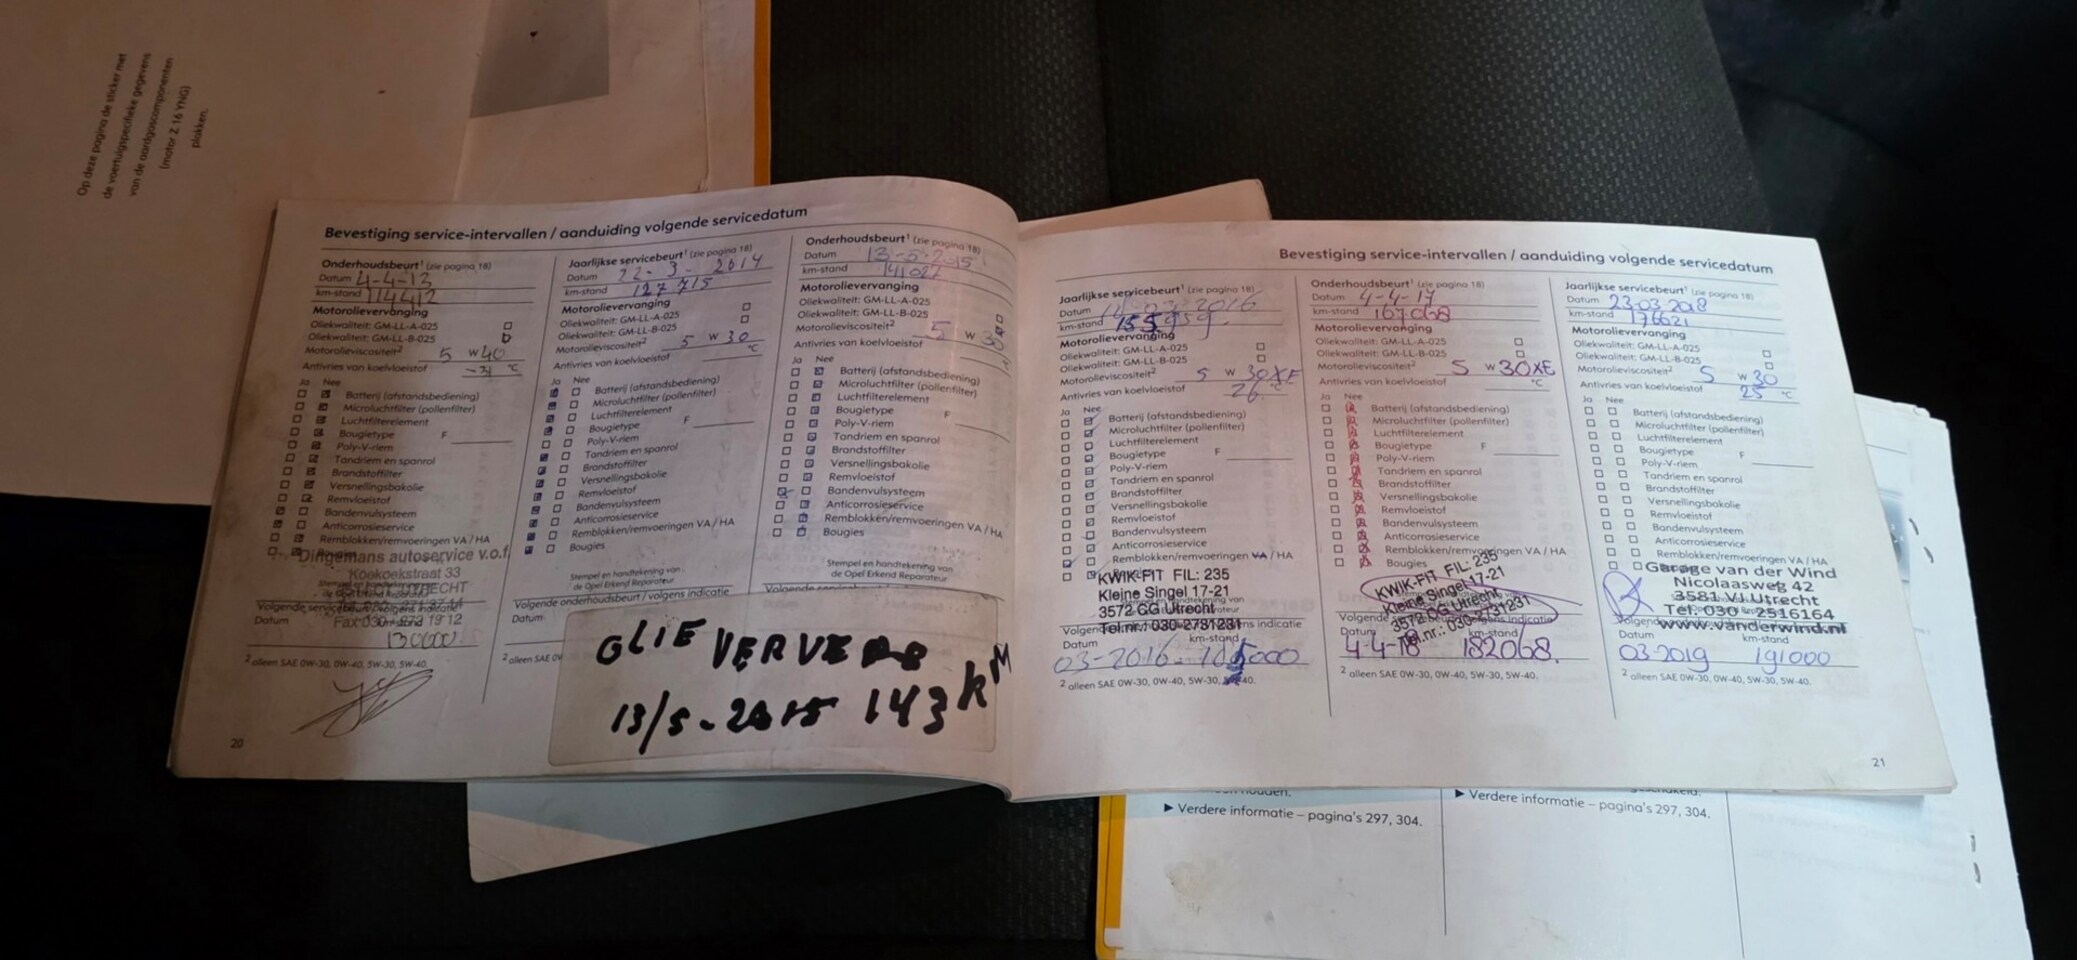 Op deze pagina de sticker met
de voertuigspecifieke gegevens
van de aardgascomponenten
(motor Z 16 YNG)
plakken.
Bevestiging service-intervallen / aanduiding volgende servicedatum
Onderhoudsbeurt¹ (zie pagina 18)
Datum 4-4-13
km-stand 114412
Motorolievervanging
Oliekwaliteit: GM-LL-A-025
Oliekwaliteit: GM-LL-B-025
Motorolieviscositeit² 5 W 40
Antivries van koelvloeistof -31 °C
Ja Nee
Batterij (afstandsbediening)
Microluchtfilter (pollenfilter)
Luchtfilterelement
Bougietype F
Poly-V-riem
Tandriem en spanrol
Brandstoffilter
Versnellingsbakolie
Remvloeistof
Bandenvulsysteem
Anticorrosieservice
Remblokken/remvoeringen VA / HA
Dingemans autoservice v.o.f.
Koekoekstraat 33
UTRECHT
Volgende
Datum
130000
² alleen SAE 0W-30, 0W-40, 5W-30, 5W-40.
20
Jaarlijkse servicebeurt¹ (zie pagina 18)
Datum 22-3-2014
km-stand 127715
Motorolievervanging
Oliekwaliteit: GM-LL-A-025
Oliekwaliteit: GM-LL-B-025
Motorolieviscositeit² 5 W 30
Antivries van koelvloeistof °C
Ja Nee
Batterij (afstandsbediening)
Microluchtfilter (pollenfilter)
Luchtfilterelement
Bougietype F
Poly-V-riem
Tandriem en spanrol
Brandstoffilter
Versnellingsbakolie
Remvloeistof
Bandenvulsysteem
Anticorrosieservice
Remblokken/remvoeringen VA / HA
Bougies
Stempel en handtekening van
de Opel Erkend Reparateur
Volgende onderhoudsbeurt / volgens indicatie
Datum
² alleen SAE
Onderhoudsbeurt¹ (zie pagina 18)
Datum 13-5-2015
km-stand 141022
Motorolievervanging
Oliekwaliteit: GM-LL-A-025
Oliekwaliteit: GM-LL-B-025
Motorolieviscositeit² 5 W 30
Antivries van koelvloeistof
Ja Nee
Batterij (afstandsbediening)
Microluchtfilter (pollenfilter)
Luchtfilterelement
Bougietype F
Poly-V-riem
Tandriem en spanrol
Brandstoffilter
Versnellingsbakolie
Remvloeistof
Bandenvulsysteem
Anticorrosieservice
Remblokken/remvoeringen VA / HA
Bougies
Stempel en handtekening van
de Opel Erkend Reparateur
GLIE VERVERS
13/5-2015 143 kM
Bevestiging service-intervallen / aanduiding volgende servicedatum
Jaarlijkse servicebeurt¹ (zie pagina 18)
Datum 2016
km-stand
Motorolievervanging
Oliekwaliteit: GM-LL-A-025
Oliekwaliteit: GM-LL-B-025
Motorolieviscositeit² 5 W 30XE
Antivries van koelvloeistof 26 °C
Ja Nee
Batterij (afstandsbediening)
Microluchtfilter (pollenfilter)
Luchtfilterelement
Bougietype F
Poly-V-riem
Tandriem en spanrol
Brandstoffilter
Versnellingsbakolie
Remvloeistof
Bandenvulsysteem
Anticorrosieservice
Remblokken/remvoeringen VA / HA
KWIK-FIT FIL: 235
Kleine Singel 17-21
3572 CG Utrecht
Tel.nr.: 030-2731231
Datum km-stand
03-2016
² alleen SAE 0W-30, 0W-40, 5W-30, 5W-40.
Onderhoudsbeurt¹ (zie pagina 18)
Datum 4-4-17
km-stand 167068
Motorolievervanging
Oliekwaliteit: GM-LL-A-025
Oliekwaliteit: GM-LL-B-025
Motorolieviscositeit² 5 W 30XE
Antivries van koelvloeistof °C
Ja Nee
Batterij (afstandsbediening)
Microluchtfilter (pollenfilter)
Luchtfilterelement
Bougietype F
Poly-V-riem
Tandriem en spanrol
Brandstoffilter
Versnellingsbakolie
Remvloeistof
Bandenvulsysteem
Anticorrosieservice
Remblokken/remvoeringen VA / HA
Bougies
KWIK-FIT FIL: 235
Kleine Singel 17-21
3572 CG Utrecht
Tel.nr.: 030-2731231
Datum km-stand
4-4-18 182068.
² alleen SAE 0W-30, 0W-40, 5W-30, 5W-40.
Jaarlijkse servicebeurt¹ (zie pagina 18)
Datum 23-03-2018
km-stand 176621
Motorolievervanging
Oliekwaliteit: GM-LL-A-025
Oliekwaliteit: GM-LL-B-025
Motorolieviscositeit² 5 W 30
Antivries van koelvloeistof 25 °C
Ja Nee
Batterij (afstandsbediening)
Microluchtfilter (pollenfilter)
Luchtfilterelement
Bougietype F
Poly-V-riem
Tandriem en spanrol
Brandstoffilter
Versnellingsbakolie
Remvloeistof
Bandenvulsysteem
Anticorrosieservice
Remblokken/remvoeringen VA / HA
Garage van der Wind
Nicolaasweg 42
3581 VJ Utrecht
Tel. 030 - 2516164
www.vanderwind.nl
Datum km-stand
03-2019 191000
² alleen SAE 0W-30, 0W-40, 5W-30, 5W-40.
21
► Verdere informatie – pagina's 297, 304.
► Verdere informatie – pagina's 297, 304.